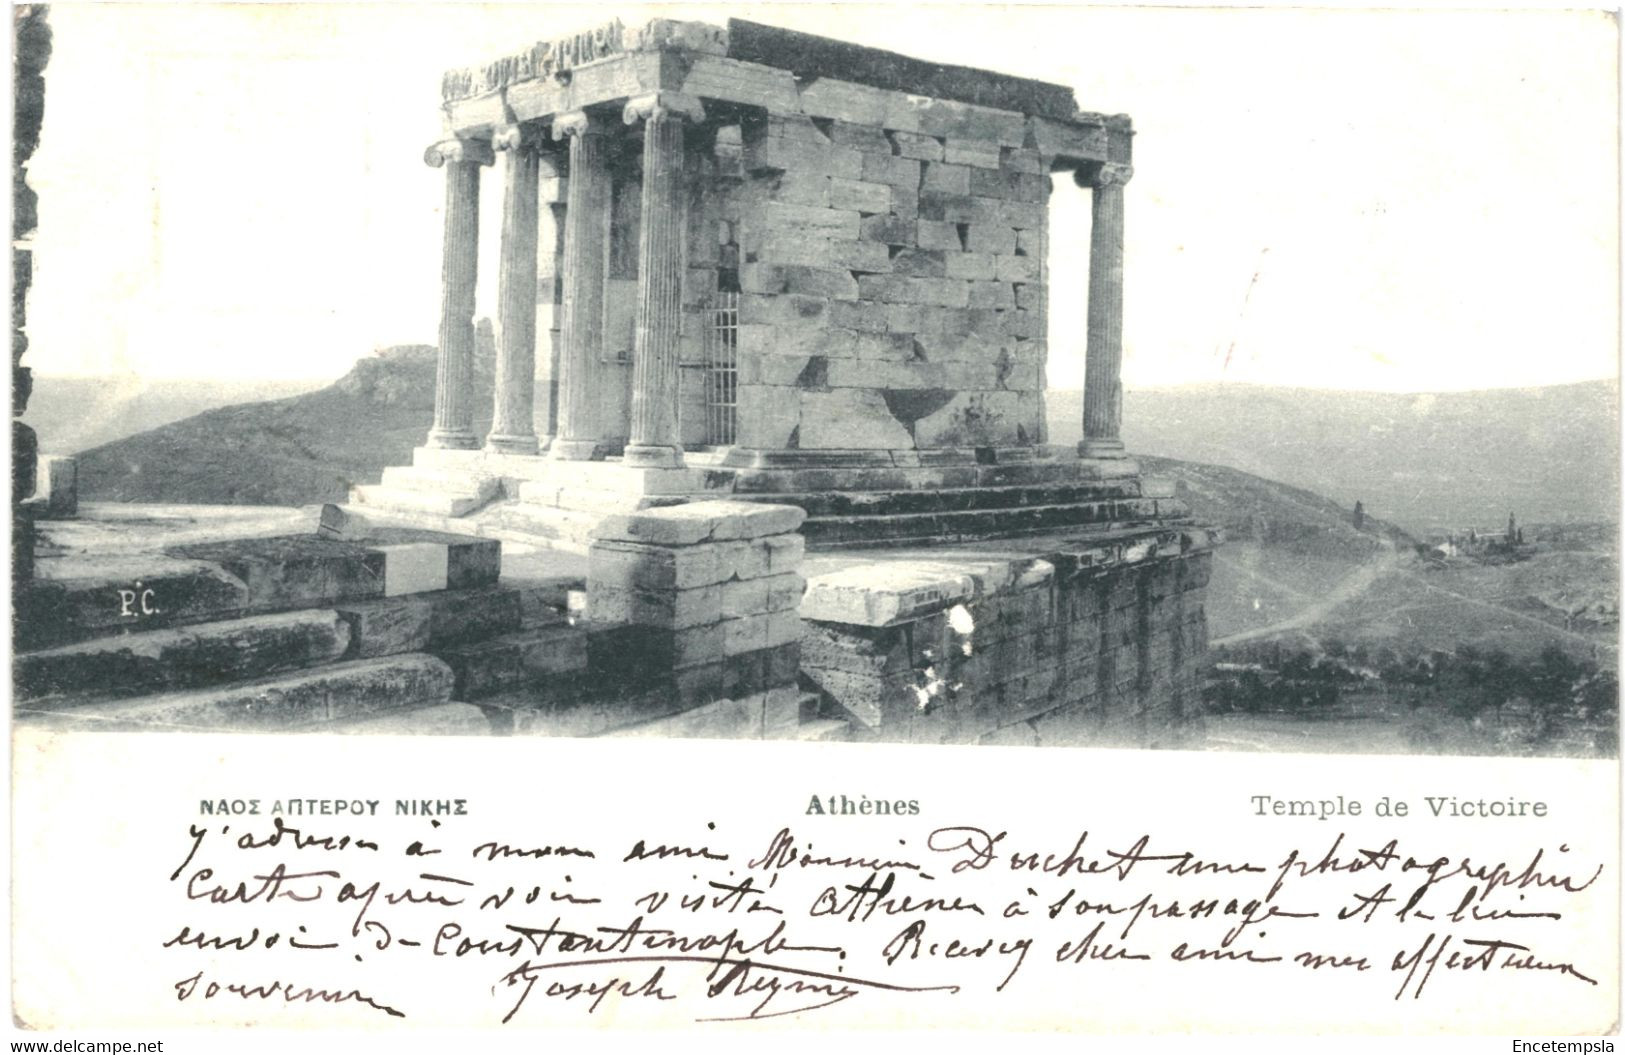 P.C.
ΝΑΟΣ ΑΠΤΕΡΟΥ ΝΙΚΗΣ Athènes Temple de Victoire
J'adresse à mon ami Monsieur Duchet une photographie
Carte après voir visité Athènes à son passage et le lui
envoi de Constantinople. Recevez cher ami mes affectueux
souvenirs Joseph
www.delcampe.net Encetempsla